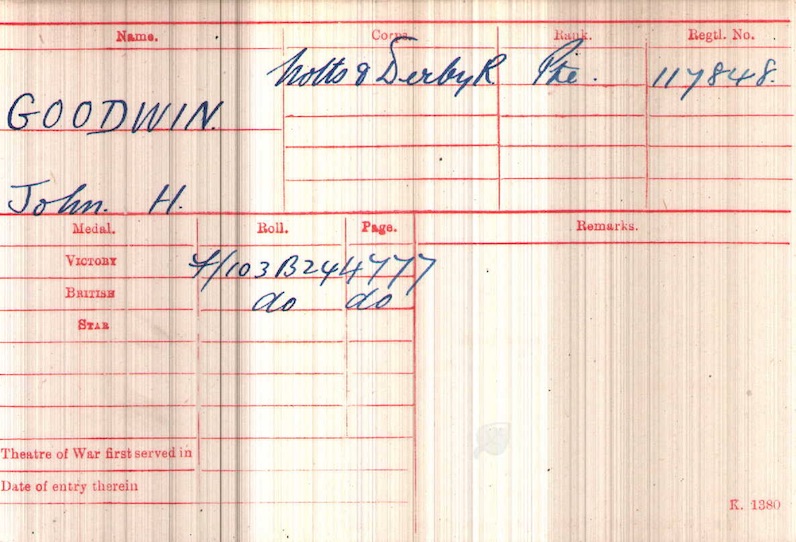 Name. Corps. Rank. Regtl. No.
Notts & Derby R Pte. 117848.
GOODWIN.
John. H.
Medal. Roll. Page. Remarks.
VICTORY F/103B24 4777
BRITISH do do
STAR
Theatre of War first served in
Date of entry therein
K. 1380